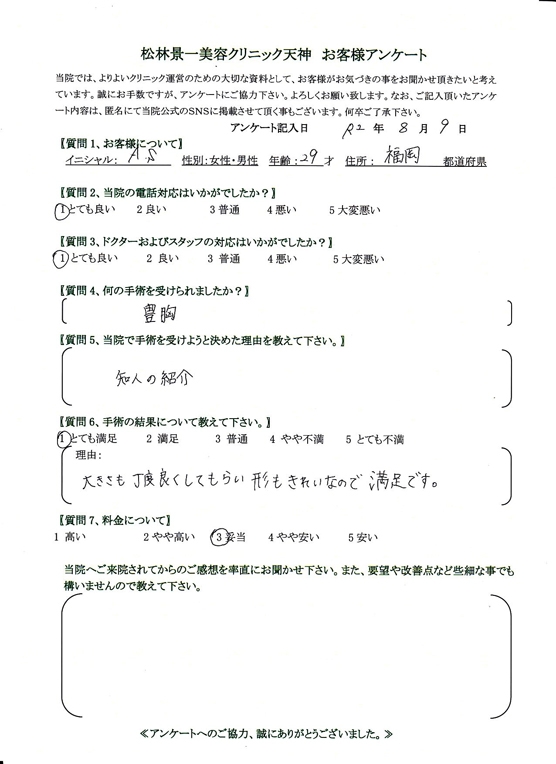 松林景一美容クリニック天神　お客様アンケート
当院では、よりよいクリニック運営のための大切な資料として、お客様がお気づきの事をお聞かせ頂きたいと考え
ています。誠にお手数ですが、アンケートにご協力下さい。よろしくお願い致します。なお、ご記入頂いたアンケ
ート内容は、匿名にて当院公式のSNSに掲載させて頂く事もございます。何卒ご了承下さい。
アンケート記入日　R2 年 8 月 9 日
〖質問1、お客様について〗
イニシャル： A.S　性別：女性・男性　年齢：29 才　住所： 福岡　都道府県
〖質問2、当院の電話対応はいかがでしたか？〗
1 とても良い　2 良い　3 普通　4 悪い　5 大変悪い
〖質問3、ドクターおよびスタッフの対応はいかがでしたか？〗
1 とても良い　2 良い　3 普通　4 悪い　5 大変悪い
〖質問4、何の手術を受けられましたか？〗
豊胸
〖質問5、当院で手術を受けようと決めた理由を教えて下さい。〗
知人の紹介
〖質問6、手術の結果について教えて下さい。〗
1 とても満足　2 満足　3 普通　4 やや不満　5 とても不満
理由：
大きさも丁度良くしてもらい形もきれいなので満足です。
〖質問7、料金について〗
1 高い　2 やや高い　3 妥当　4 やや安い　5 安い
当院へご来院されてからのご感想を率直にお聞かせ下さい。また、要望や改善点など些細な事でも
構いませんので教えて下さい。
≪アンケートへのご協力、誠にありがとうございました。≫